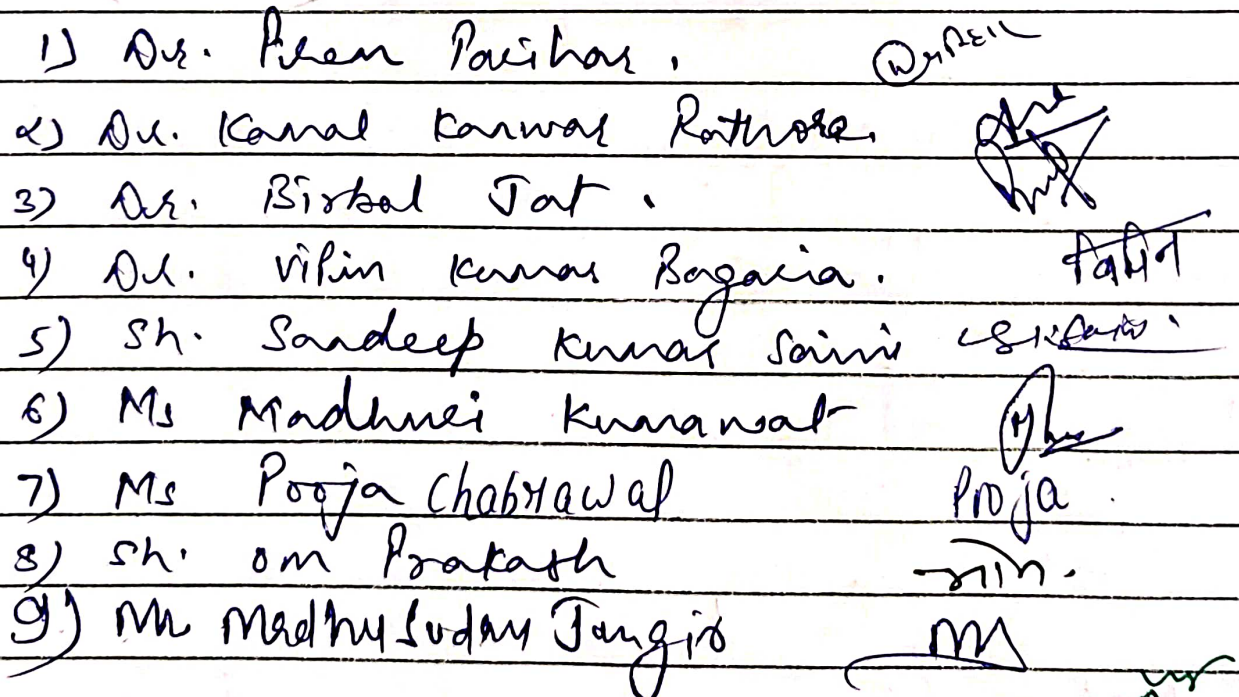 1) Dr. Prem Parihar.
2) Dr. Kamal Kanwar Rathore.
3) Dr. Birbal Jat.
4) Dr. Vipin Kumar Bagaria. विपिन
5) Sh. Sandeep Kumar Saini
6) Ms Madhuri Kumawat
7) Ms Pooja Chabrawal Pooja
8) Sh. Om Prakash
9) Mr Madhusudan Jangir